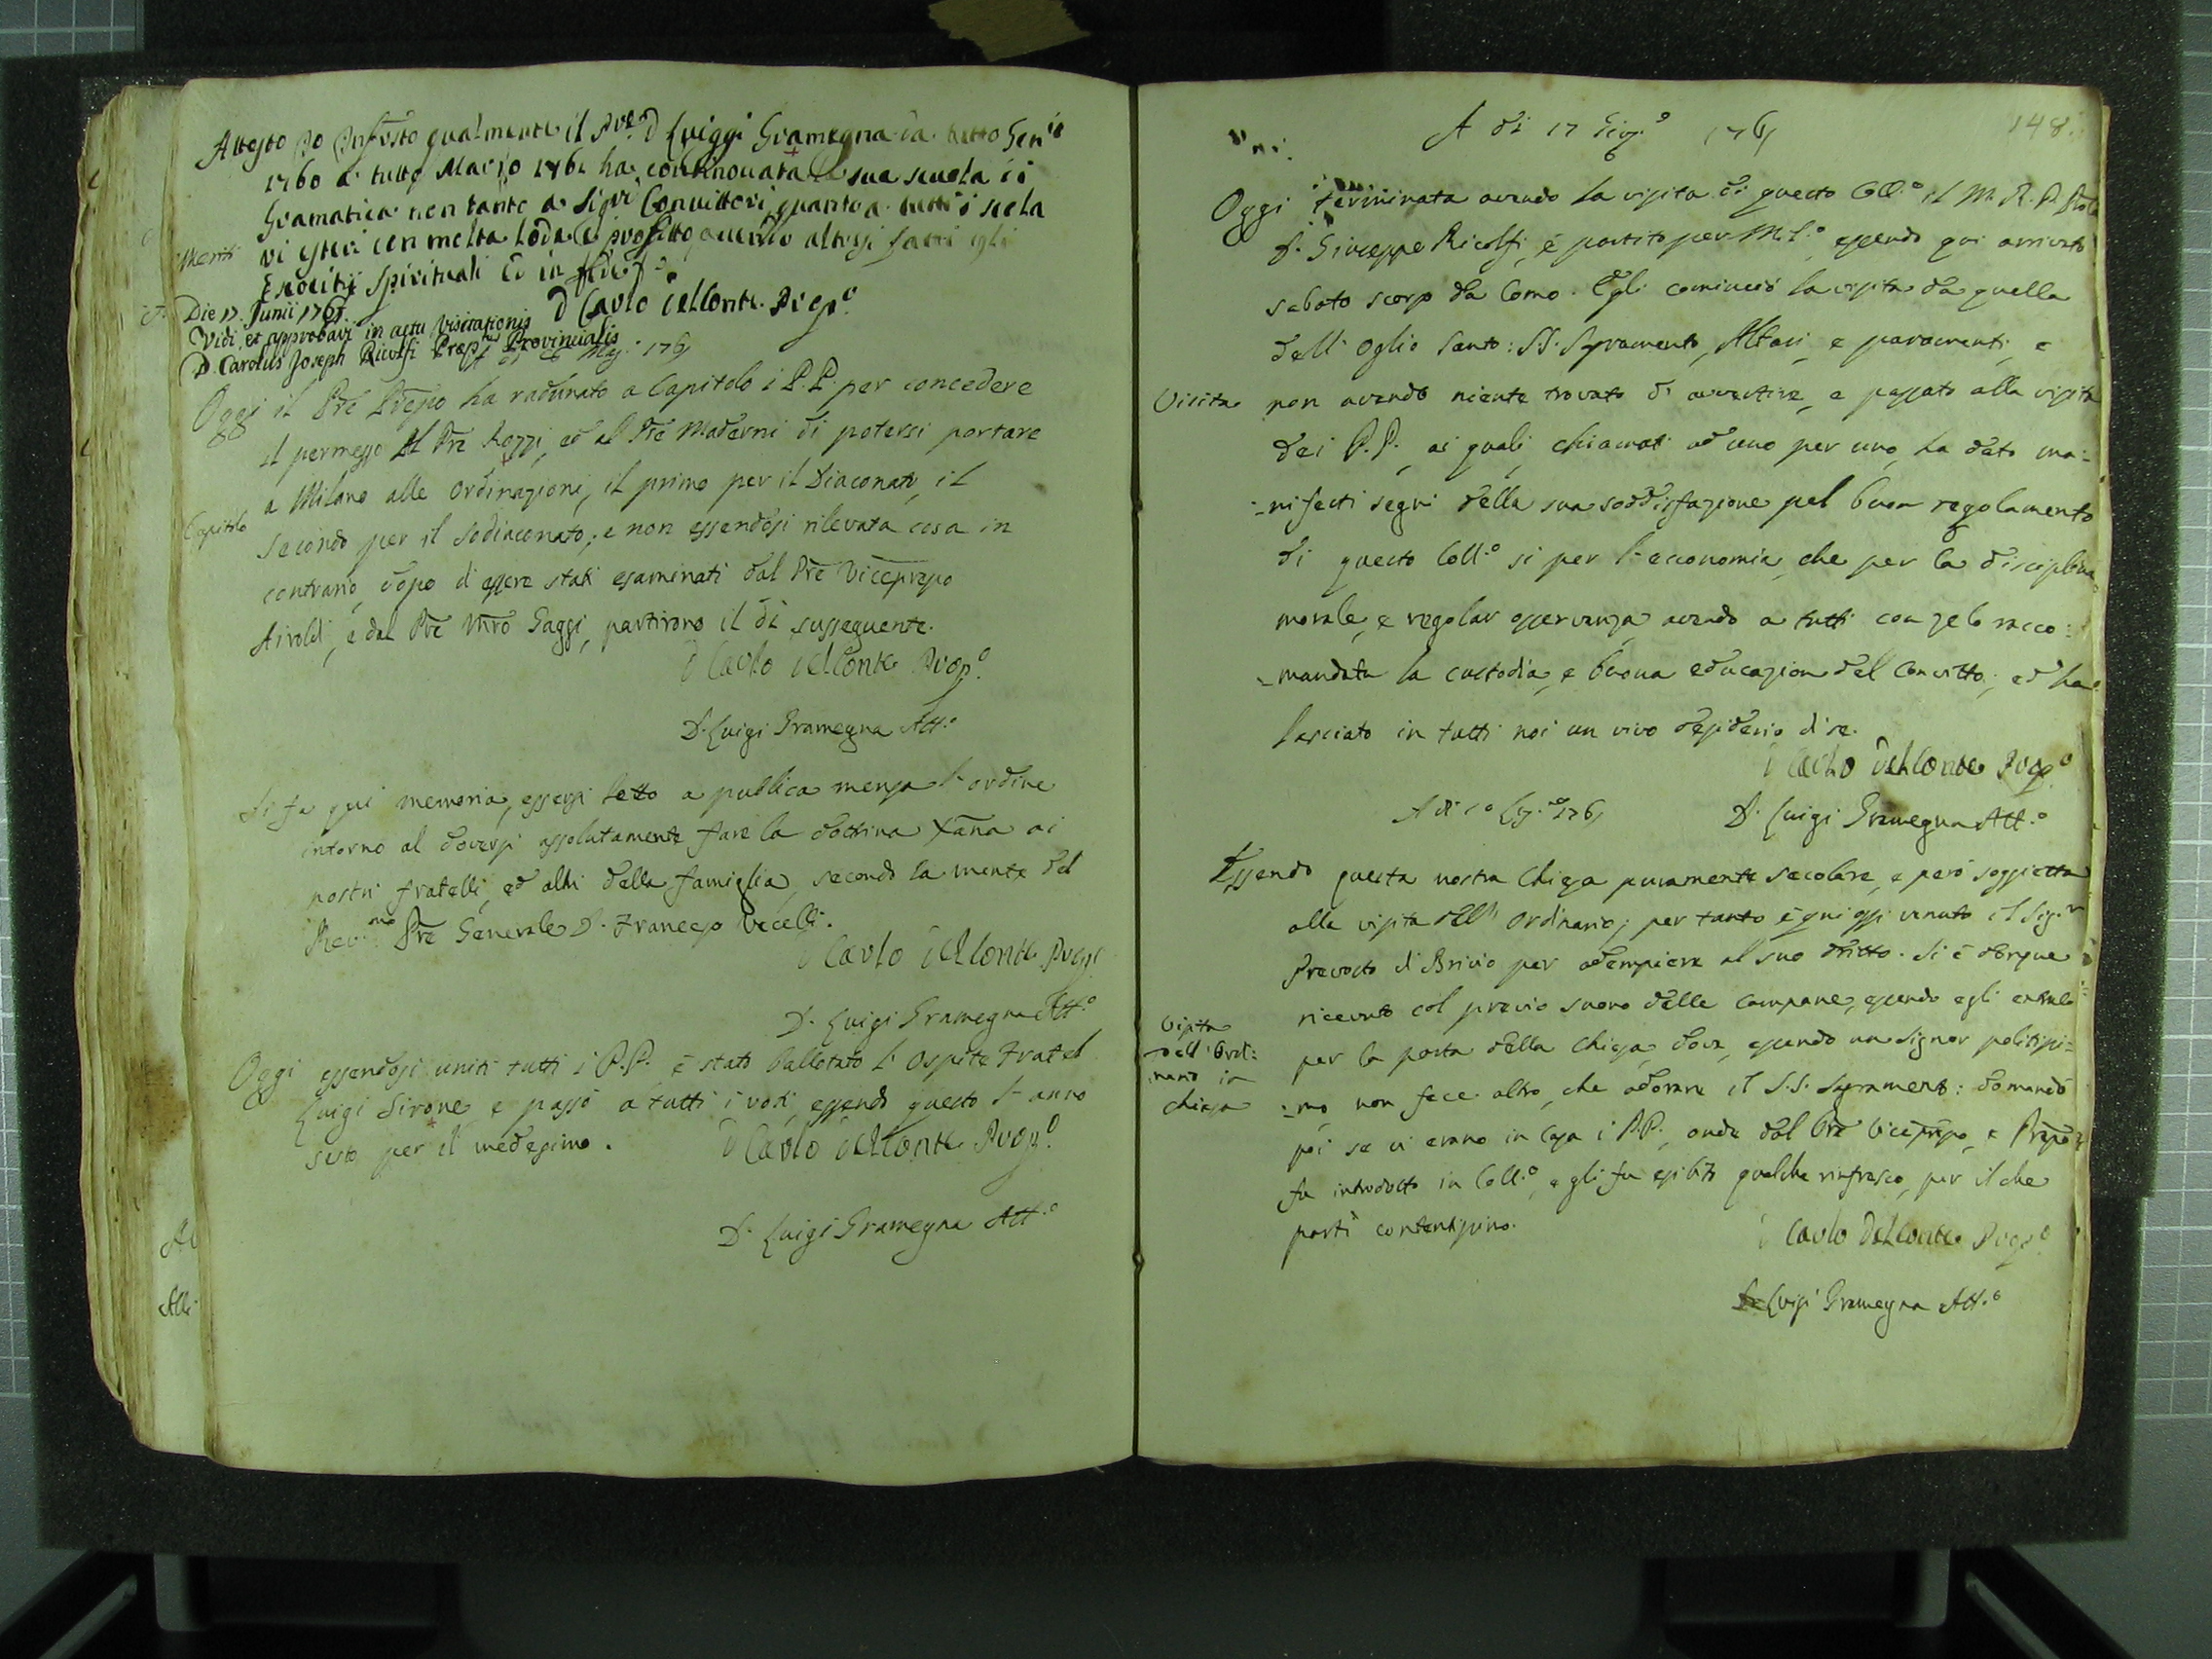 Attesto Io Infrstō qualmente il Pre D Luiggi Gramegna da tutto Genro
1760 a tutto Marzo 1761 ha continouata la sua scuola di
Gramatica non tanto a Sigri Convittori, quanto a tutti i scola
vi esteri con molta lode, e profitto, avendo altresi fatti gli
Meriti
Esercitij spirituali Ed in fede
D Carlo delConte Prepo
Die 17. Junii 1761.
Vidi, et approbavi in actu Visitationis
D. Carolus Joseph Ricolfi Præptus Provincialis
Mag. 1761
Oggi il Prē Prēpto ha radunato a Capitolo i P.P. per concedere
il permesso al Prē Rozzi, ed al Prē Maderni di potersi portare
a Milano alle Ordinazioni, il primo per il Diaconato, il
Capitolo
secondo per il Sodiaconato; e non essendosi rilevata cosa in
contrario, dopo di essere stati esaminati dal Prē Viceprepo
Airoldi, e dal Prē Mrō Gaggi, partirono il dì susseguente.
D Carlo delConte Prepo
D. Luigi Gramegna Att.o
Si fa qui memoria, essersi letto a publica mensa l'ordine
intorno al doversi assolutamente fare la dottrina Xāna ai
nostri fratelli, ed altri della famiglia, secondo la mente del
Rev.mo Prē Generale D. Francesco Vecelli.
D Carlo delConte Prepo
D. Luigi Gramegna Att.o
Oggi essendosi uniti tutti i P.P. è stato ballotato l'Ospite Fratel
Luigi Sirone, e passò a tutti i voti, essendo questo l'anno
sesto per il medesimo.
D Carlo delConte Prepo
D. Luigi Gramegna Att.o
148.
A dì 17 Giug.o 1761
Oggi terminata avendo la visita di questo Coll.o il M. R. P. Prōle
D. Giuseppe Ricolfi, è partito per Mil.o essendo qui arrivato
sabato scorso da Como. Egli cominciò la visita da quella
dell'Oglio Santo: SS. Sagramento, Altari, e paramenti, e
Visita
non avendo niente trovato di avvertire, e passato alla visita
dei P.P., ai quali, chiamati ad uno per uno, ha dato ma=
=nifesti segni della sua soddisfazione pel buon regolamento
di questo Coll.o si per l'economia, che per la disciplina
morale, e regolar osservanza, avendo a tutti con zelo racco=
=mandata la custodia, e buona educazion del Convitto; ed ha
lasciato in tutti noi un vivo desiderio di se.
D Carlo delConte Prepo
D. Luigi Gramegna Att.o
A dì 10 Lug.o 1761
Essendo questa nostra Chiesa puramente secolare, e però soggietta
alla visita dell'Ordinario; per tanto è qui oggi venuto il Sig.r
Prevosto di Brivio per adempiere al suo dritto. Si è dunque
ricevuto col previo suono delle campane, essendo egli entrato
Visita
dell'Ordi=
nario in
Chiesa
per la porta della Chiesa, dove, essendo un Signor politissi=
=mo non fece altro, che adorare il S.S. Sagramento: domandò
poi se vi erano in Casa i P.P., onde dal Prē Viceprēpo, e Prēpo
fu introdotto in Coll.o, e gli fu esibito qualche rinfresco, per il che
partì contentissimo.
D Carlo DelConte Prepo
D. Luigi Gramegna Att.o